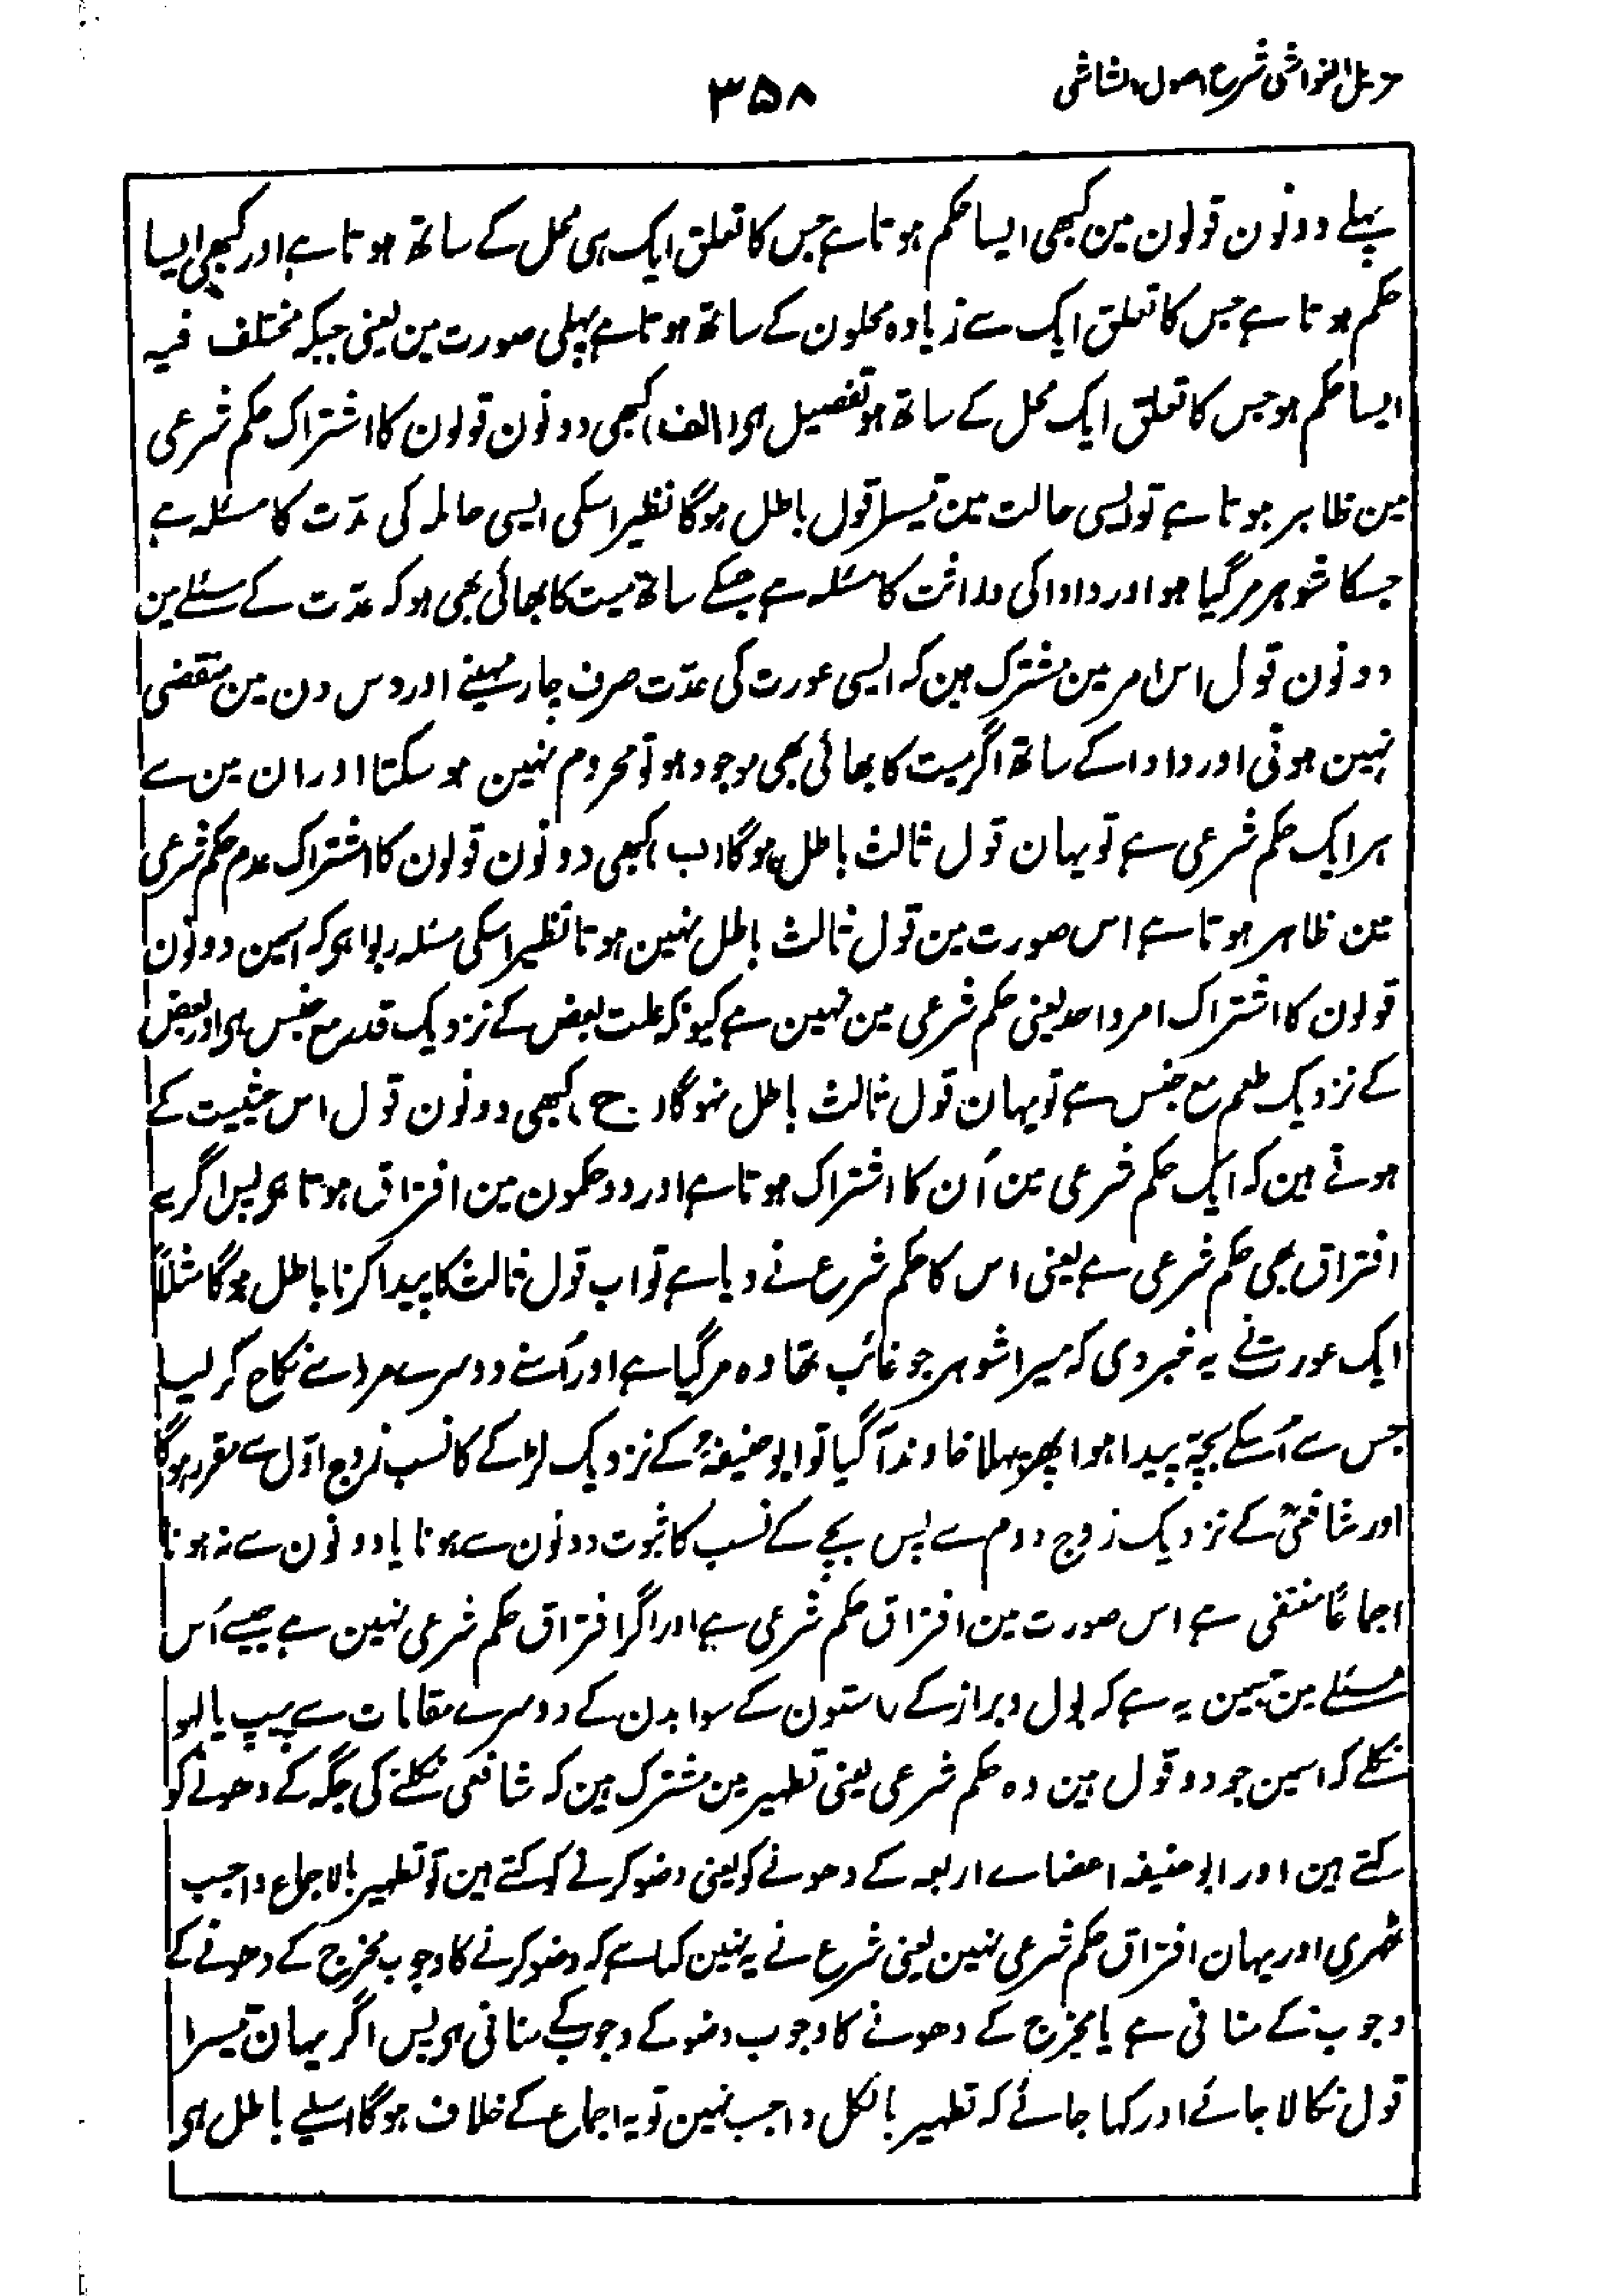 مزیل الغواشی شرح اصول الشاشی
۳۵۸
پہلے دونون قولون مین کبھی ایسا حکم ہوتا ہے جس کا تعلق ایک ہی محل کے ساتھ ہوتا ہے اور کبھی ایسا
حکم ہوتا ہے جس کا تعلق ایک سے زیادہ محلون کے ساتھ ہوتا ہے پہلی صورت مین یعنی جبکہ مختلف فیہ
ایسا حکم ہو جس کا تعلق ایک محل کے ساتھ ہو تفصیل ہی (الف) کبھی دونون قولون کا اشتراک حکم شرعی
مین ظاہر ہوتا ہے تو ایسی حالت مین تیسرا قول باطل ہوگا نظیر اسکی ایسی حاملہ کی عدّت کا مسئلہ ہے
جسکا شوہر مرگیا ہو اور دادا کی وراثت کا مسئلہ ہے جسکے ساتھ میت کا بھائی بھی ہو کہ عدّت کے مسئلے مین
دونون قول اس امر مین مشترک ہین کہ ایسی عورت کی عدّت صرف چار مہینے اور دس دن مین منقضی
نہین ہوتی اور دادا کے ساتھ اگر میت کا بھائی بھی موجود ہو تو محروم نہین ہو سکتا اور ان مین سے
ہر ایک حکم شرعی ہے تو یہان قول ثالث باطل ہوگا (ب) کبھی دونون قولون کا اشتراک عدم حکم شرعی
مین ظاہر ہوتا ہے اس صورت مین قول ثالث باطل نہین ہوتا نظیر اسکی مسئلہ ربوا ہی کہ اسمین دونون
قولون کا اشتراک امر واحد یعنی حکم شرعی مین نہین ہے کیونکہ علت بعض کے نزدیک قدر مع جنس ہی اور بعض
کے نزدیک طعم مع جنس ہے تو یہان قول ثالث باطل نہوگا (ج) کبھی دونون قول اس حیثیت کے
ہوتے ہین کہ ایک حکم شرعی مین اُن کا اشتراک ہوتا ہے اور دو حکمون مین افتراق ہوتا ہی پس اگر یہ
افتراق بھی حکم شرعی ہے یعنی اس کا حکم شرع نے دیا ہے تو اب قول ثالث کا پیدا کرنا باطل ہوگا مثلاً
ایک عورت نے یہ خبر دی کہ میرا شوہر جو غائب تھا وہ مرگیا ہے اور اُسنے دوسرے مرد سے نکاح کر لیا
جس سے اُسکے بچّہ پیدا ہوا پھر پہلا خاوند آگیا تو ابو حنیفہؒ کے نزدیک لڑکے کا نسب زوج اوّل سے مقرر ہوگا
اور شافعیؒ کے نزدیک زوج دوم سے پس بچے کے نسب کا ثبوت دونون سے ہونا یا دونون سے نہ ہونا
اجماعًا منتفی ہے اس صورت مین افتراق حکم شرعی ہے اور اگر افتراق حکم شرعی نہین ہے جیسے اُس
مسئلے مین جسمین یہ ہے کہ بول وبراز کے راستون کے سوا بدن کے دوسرے مقامات سے پیپ یا لہو
نکلے کہ اسمین جو دو قول ہین وہ حکم شرعی یعنی تطہیر مین مشترک ہین کہ شافعی نکلنے کی جگہ کے دھونے کو
کہتے ہین اور ابو حنیفہ اعضاے اربعہ کے دھونے کو یعنی وضو کرنے کو کہتے ہین تو تطہیر بالاجماع واجب
ٹھہری اور یہان افتراق حکم شرعی نہین یعنی شرع نے یہ نہین کہا ہے کہ وضو کرنے کا وجوب مخرج کے دھونے کے
وجوب کے منافی ہے یا مخرج کے دھونے کا وجوب وضو کے وجوب کے منافی ہی پس اگر یہان تیسرا
قول نکالا جائے اور کہا جائے کہ تطہیر بالکل واجب نہین تو یہ اجماع کے خلاف ہوگا اسلیے باطل ہی